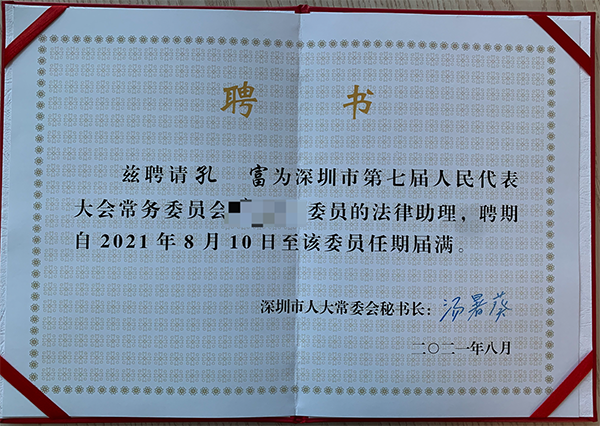 聘 书
兹聘请孔 富为深圳市第七届人民代表
大会常务委员会 委员的法律助理，聘期
自2021年8月10日至该委员任期届满。
深圳市人大常委会秘书长：汤暑葵
二〇二一年八月